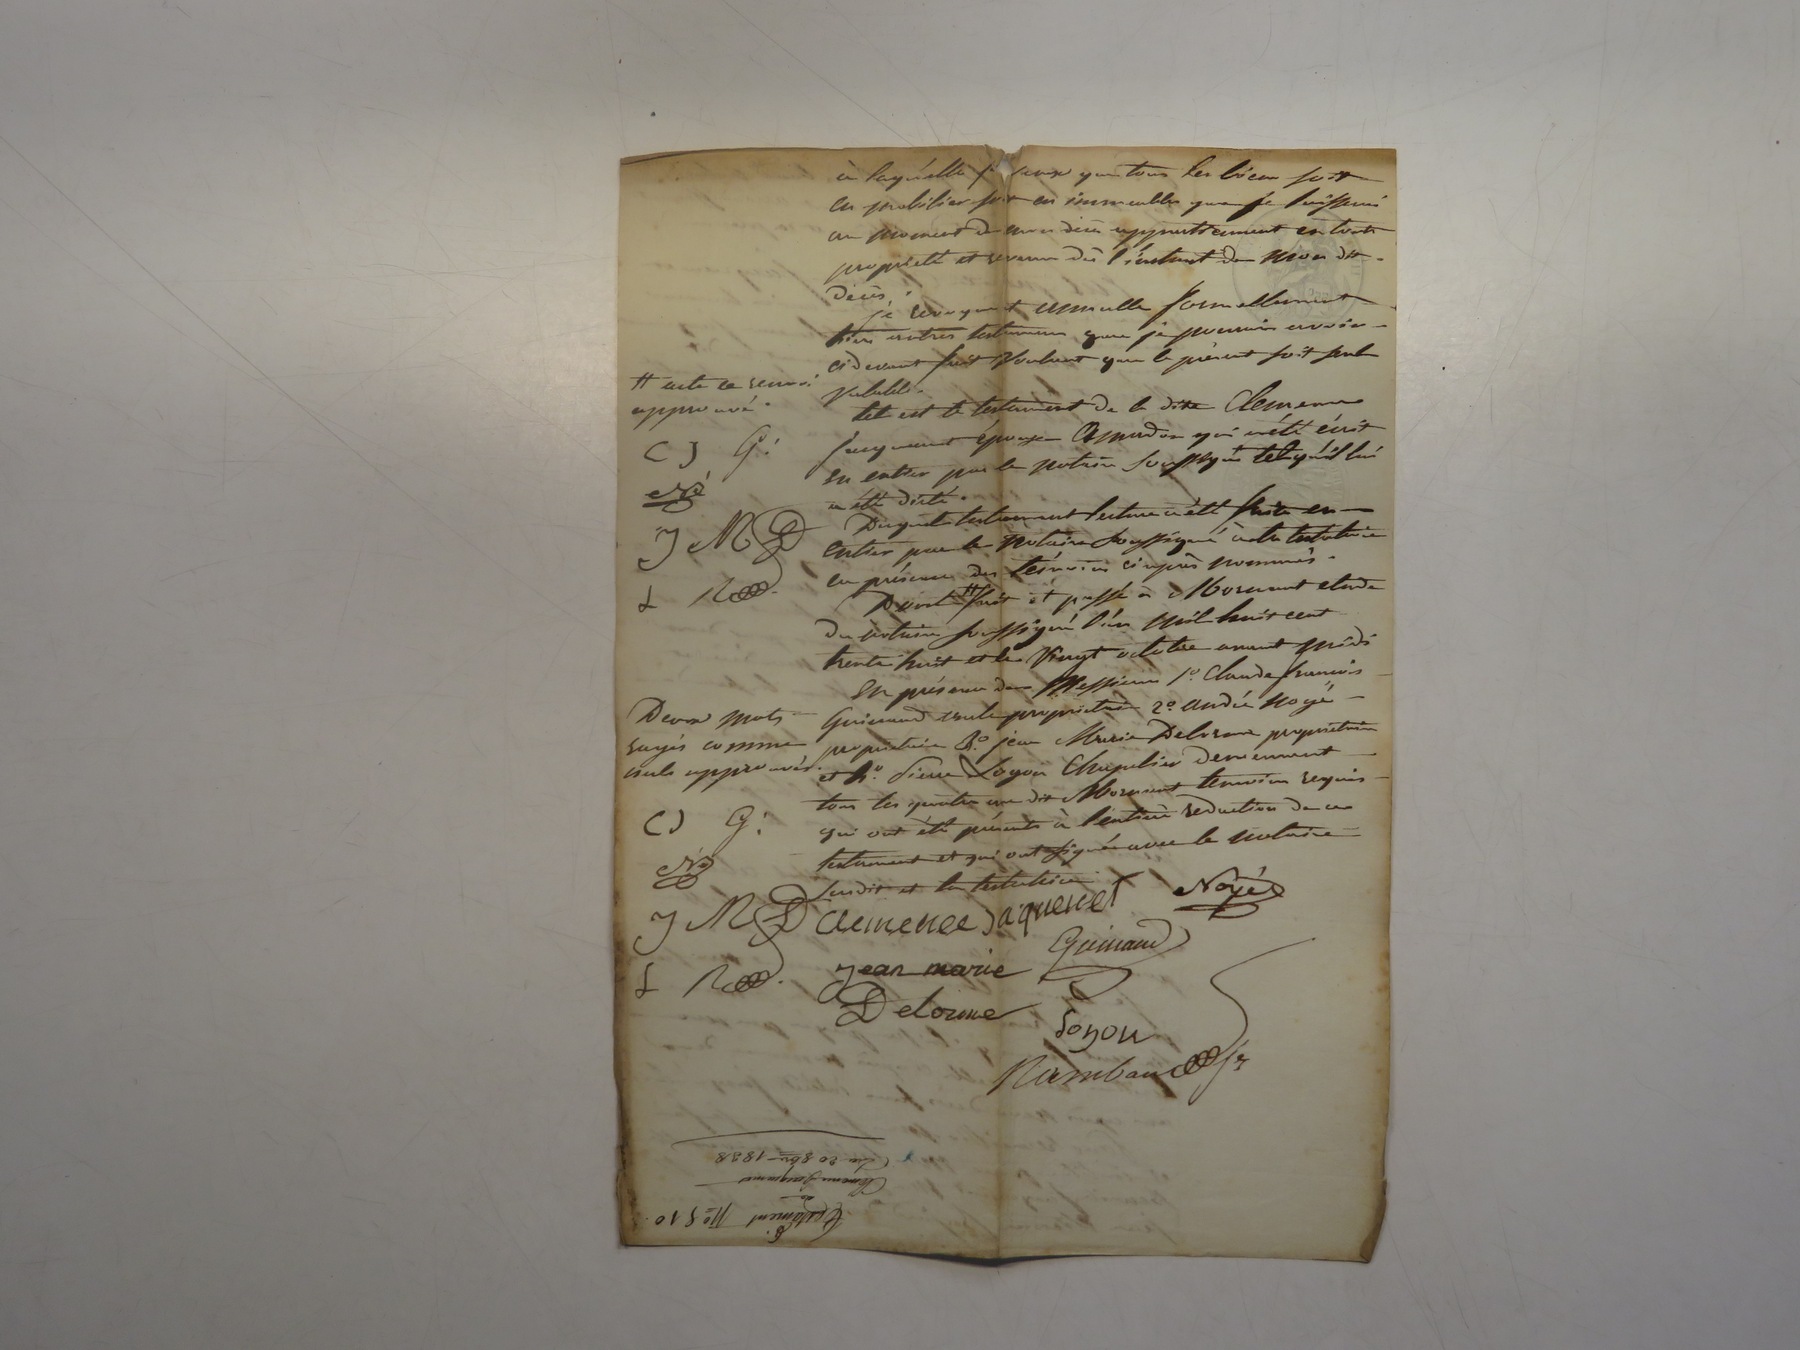 à laquelle je veux que tous les biens soit
en mobilier soit en immeubles que je laisserai
au moment de mon décès appartiennent en toute
propriété et revenu dès l'instant de mon dit
décès.
je revoque et annulle formellement
tous autres testamens que je pourrais avoir
cidevant fait voulant que le présent soit seul
valable.
tel est le testament de la dite Clemence
Jaquenet épouse qui a été écrit
en entier par le notaire soussigné tel qu'il lui
a été dicté.
Duquel testament lecture a été faite en
entier par le notaire soussigné à la testatrice
en présence des témoins ciaprès nommés.
Dont # fait et passé à Mornant etude
du notaire soussigné l'an mil huit cent
trente huit et le Vingt octobre avant midi
En présence de Messieurs 1º Claude françois
Guinand propriétaire 2º andré Noyé
propriétaire 3º jean Marie Delorme propriétaire
et 4º Pierre Loyon Chapelier demeurant
tous les quatre au dit Mornant temoins requis
qui ont été présents à l'entière redaction de ce
testament et qui ont signé avec le notaire
susdit et la testatrice
# acte ce renvoi
approuvé.
C J G:
Né
J M D
L R
Deux mots
rayés comme
nuls approuvés.
C J G:
Né
J M D
L R
Clemence Jaquenet
Noyé
Guinand
jean marie
Delorme
Loyon
Rambaud jn
Testament Nº 510.
de
Clemence Jaquenet
Du 20 8bre 1838